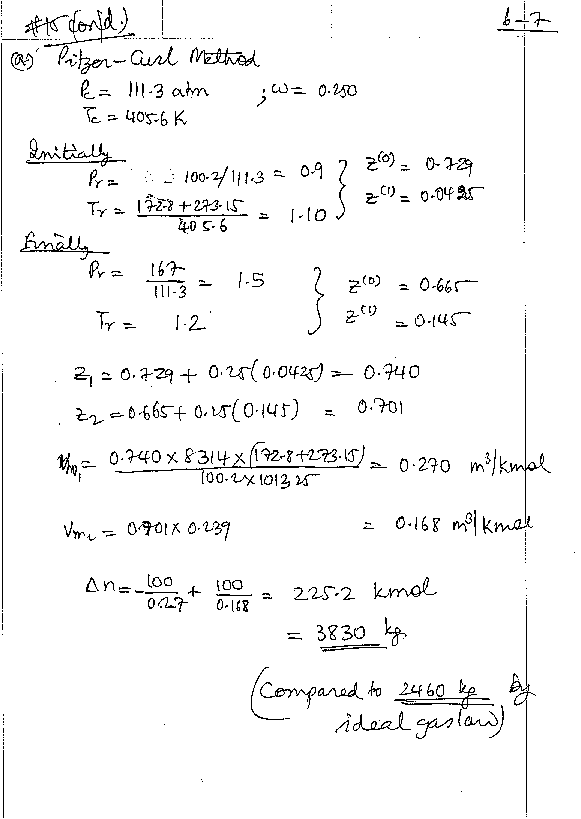 #15 Cont'd.) 6-7
(a) Pitzer-Curl Method
Pc = 111.3 atm ; ω = 0.250
Tc = 405.6 K
Initially
Pr = 100.2/111.3 = 0.9 } Z(0) = 0.729
Tr = 172.8 + 273.15 / 405.6 = 1.10 Z(1) = 0.0425
Finally
Pr = 167 / 111.3 = 1.5 } Z(0) = 0.665
Tr = 1.2 Z(1) = 0.145
Z1 = 0.729 + 0.25(0.0425) = 0.740
Z2 = 0.665 + 0.25(0.145) = 0.701
Vm1 = 0.740 × 8314 × (172.8+273.15) / 100.2 × 101325 = 0.270 m³/kmol
Vm2 = 0.701 × 0.239 = 0.168 m³/kmol
Δn = -100/0.27 + 100/0.168 = 225.2 kmol
= 3830 kg.
(Compared to 2460 kg by
ideal gas law)